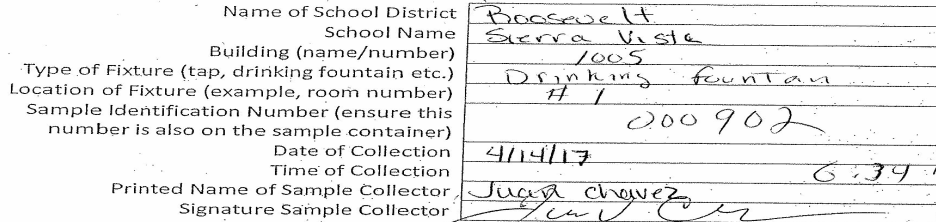 Name of School District Roosevelt
School Name Sierra Vista
Building (name/number) 1005
Type of Fixture (tap, drinking fountain etc.) Drinking fountan
Location of Fixture (example, room number) # 1
Sample Identification Number (ensure this
number is also on the sample container) 000902
Date of Collection 4/14/17
Time of Collection 6:34
Printed Name of Sample Collector Juan Chavez
Signature Sample Collector